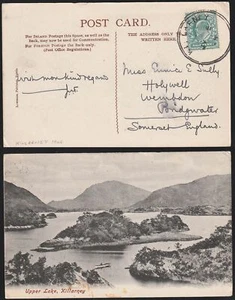 POST CARD.
For Inland Postage only, as well as the
Back, may now be used for Communication.
For Foreign Postage the Back only.
(Post Office Regulations.)
THE ADDRESS ONLY TO BE
WRITTEN HERE.
with mankind regards
Miss Eunice E Sully
Holywell
Wembdon
Bridgwater
Somerset England.
KILLARNEY 1905
Upper Lake, Killarney